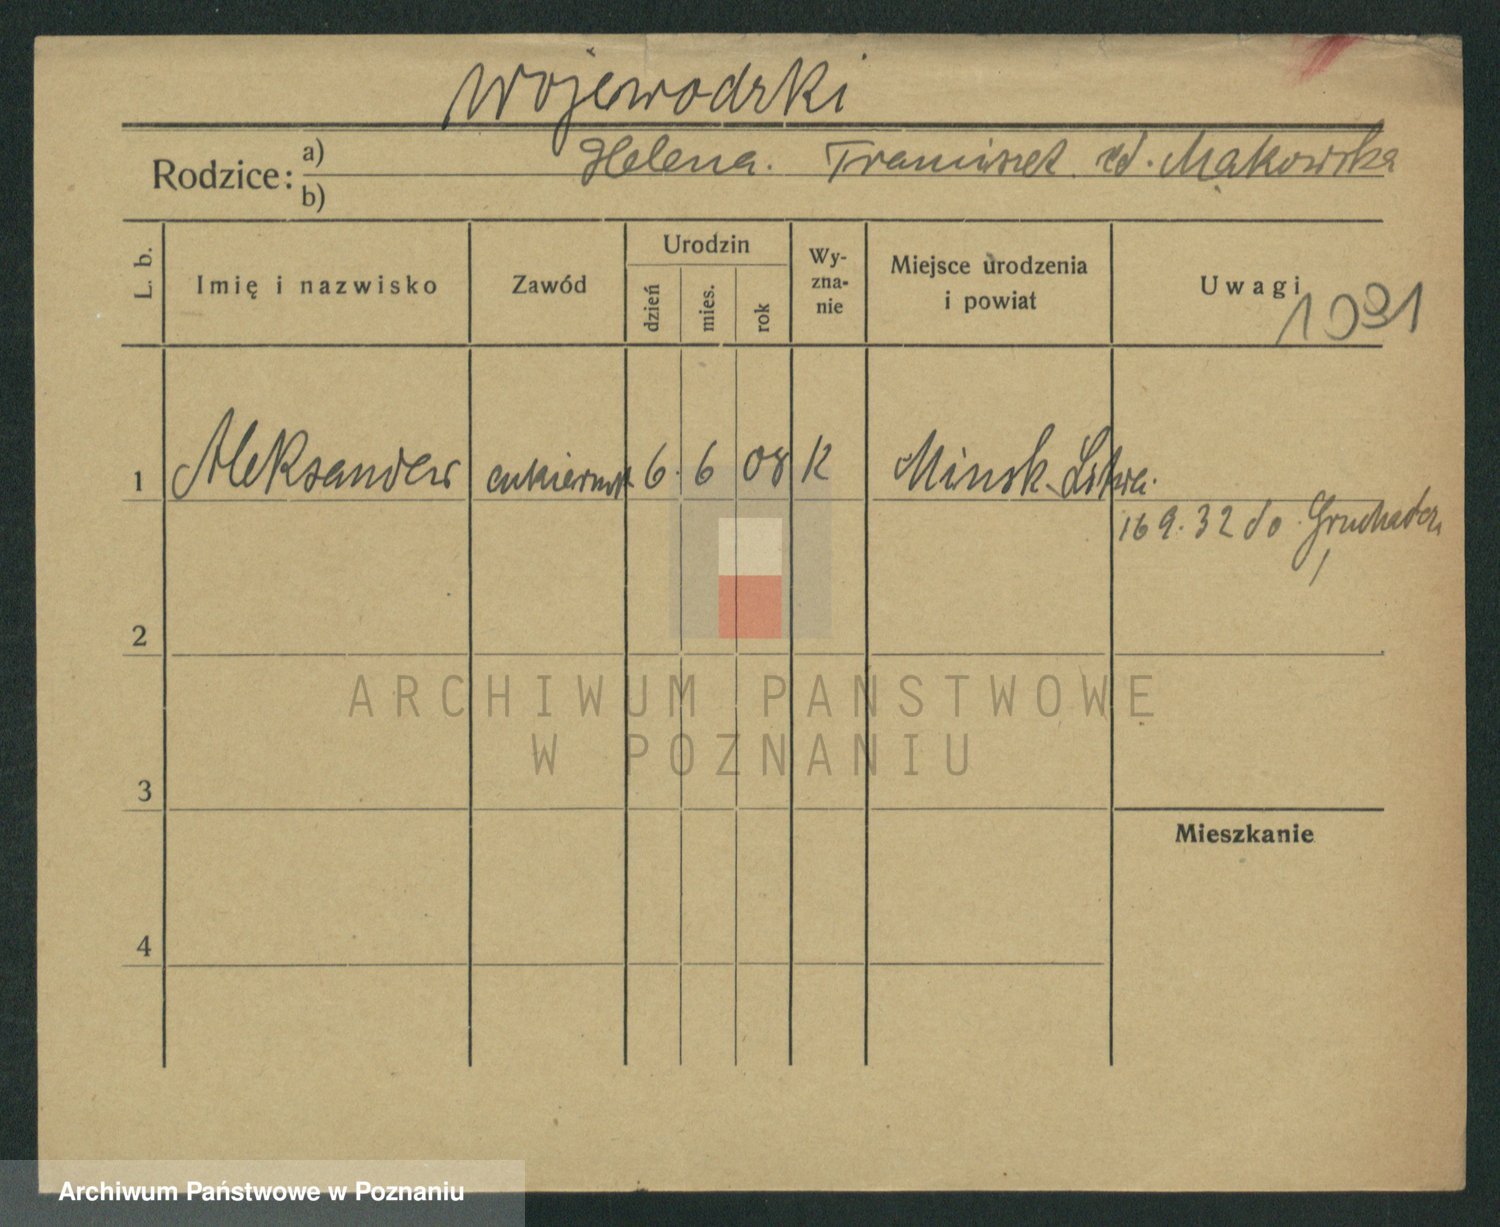 Wojewodzki
Rodzice: a) Helena. Franciszek. zd. Makowska
b)
L. b. Imię i nazwisko Zawód Urodzin Wyznanie Miejsce urodzenia i powiat Uwagi
dzień mies. rok
1931
1 Aleksander cukiernik 6. 6 08 K Minsk Litwa.
16 9. 32 do
2
3
4
Mieszkanie
ARCHIWUM PANSTWOWE
W POZNANIU
Archiwum Państwowe w Poznaniu